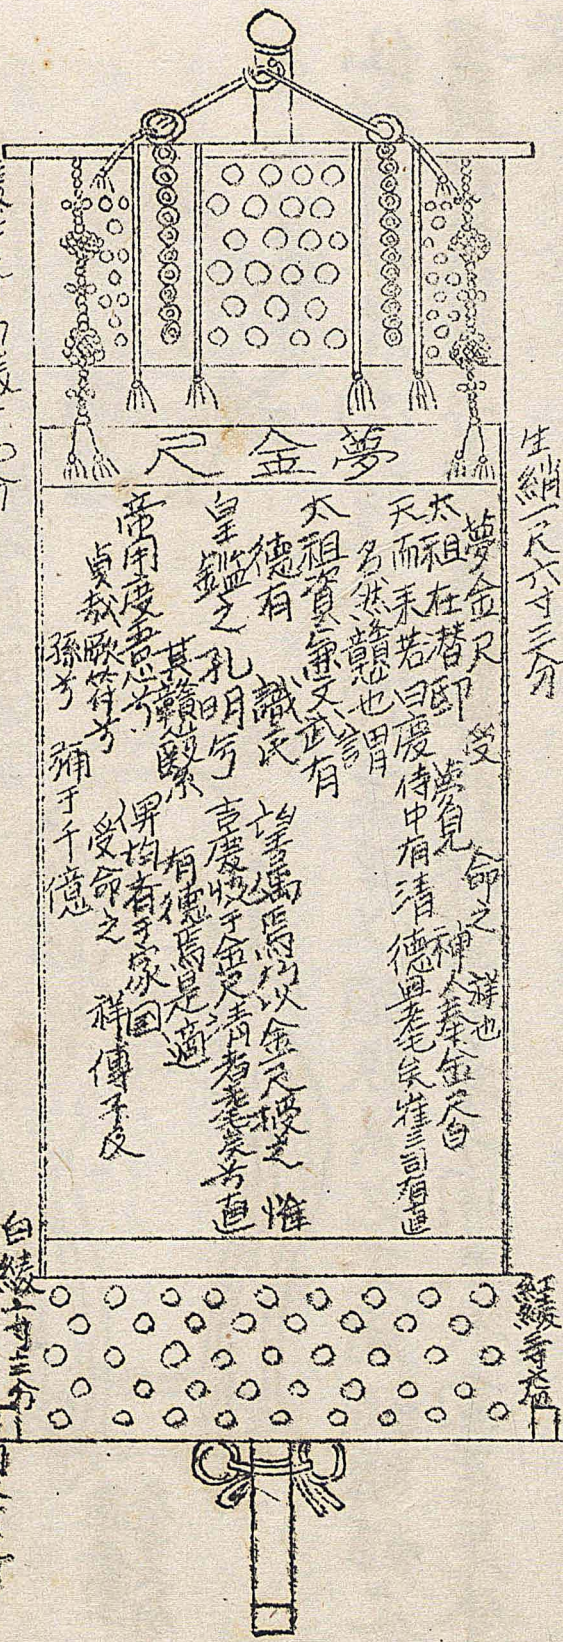 夢金尺
夢金尺 受 命之 祥也
太祖在潛邸 夢見 神人奉金尺自
天而来若曰慶侍中有清德且耄矣崔三司有直
名然戇也謂
太祖資兼文武有
德有 識民 望属焉乃以金尺授之 惟
皇鑑之孔明兮 吉慶恊于金尺清者耄矣兮直
其戇繄 有德焉是適
帝用度吾心兮 俾均有于家国
貞哉厥符兮 受命之 祥傳子及
孫兮 彌于千億
生綃一尺六寸三分
紅綾
白綾六寸三分